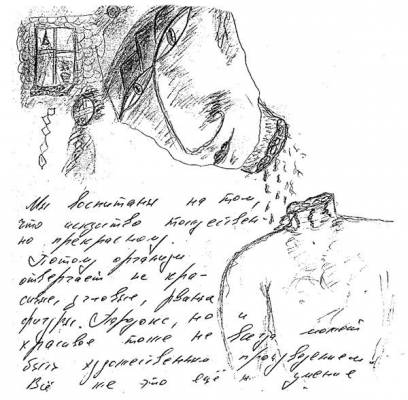 Мы воспитаны на том,
что искусство тождествен-
но прекрасному.
Потому организм
отвергает не кра-
сивые, угловые, рваные
фигуры. Парадокс, но и
красивое тоже не всегда может
быть художественным произведением.
Всё же это ещё не умение